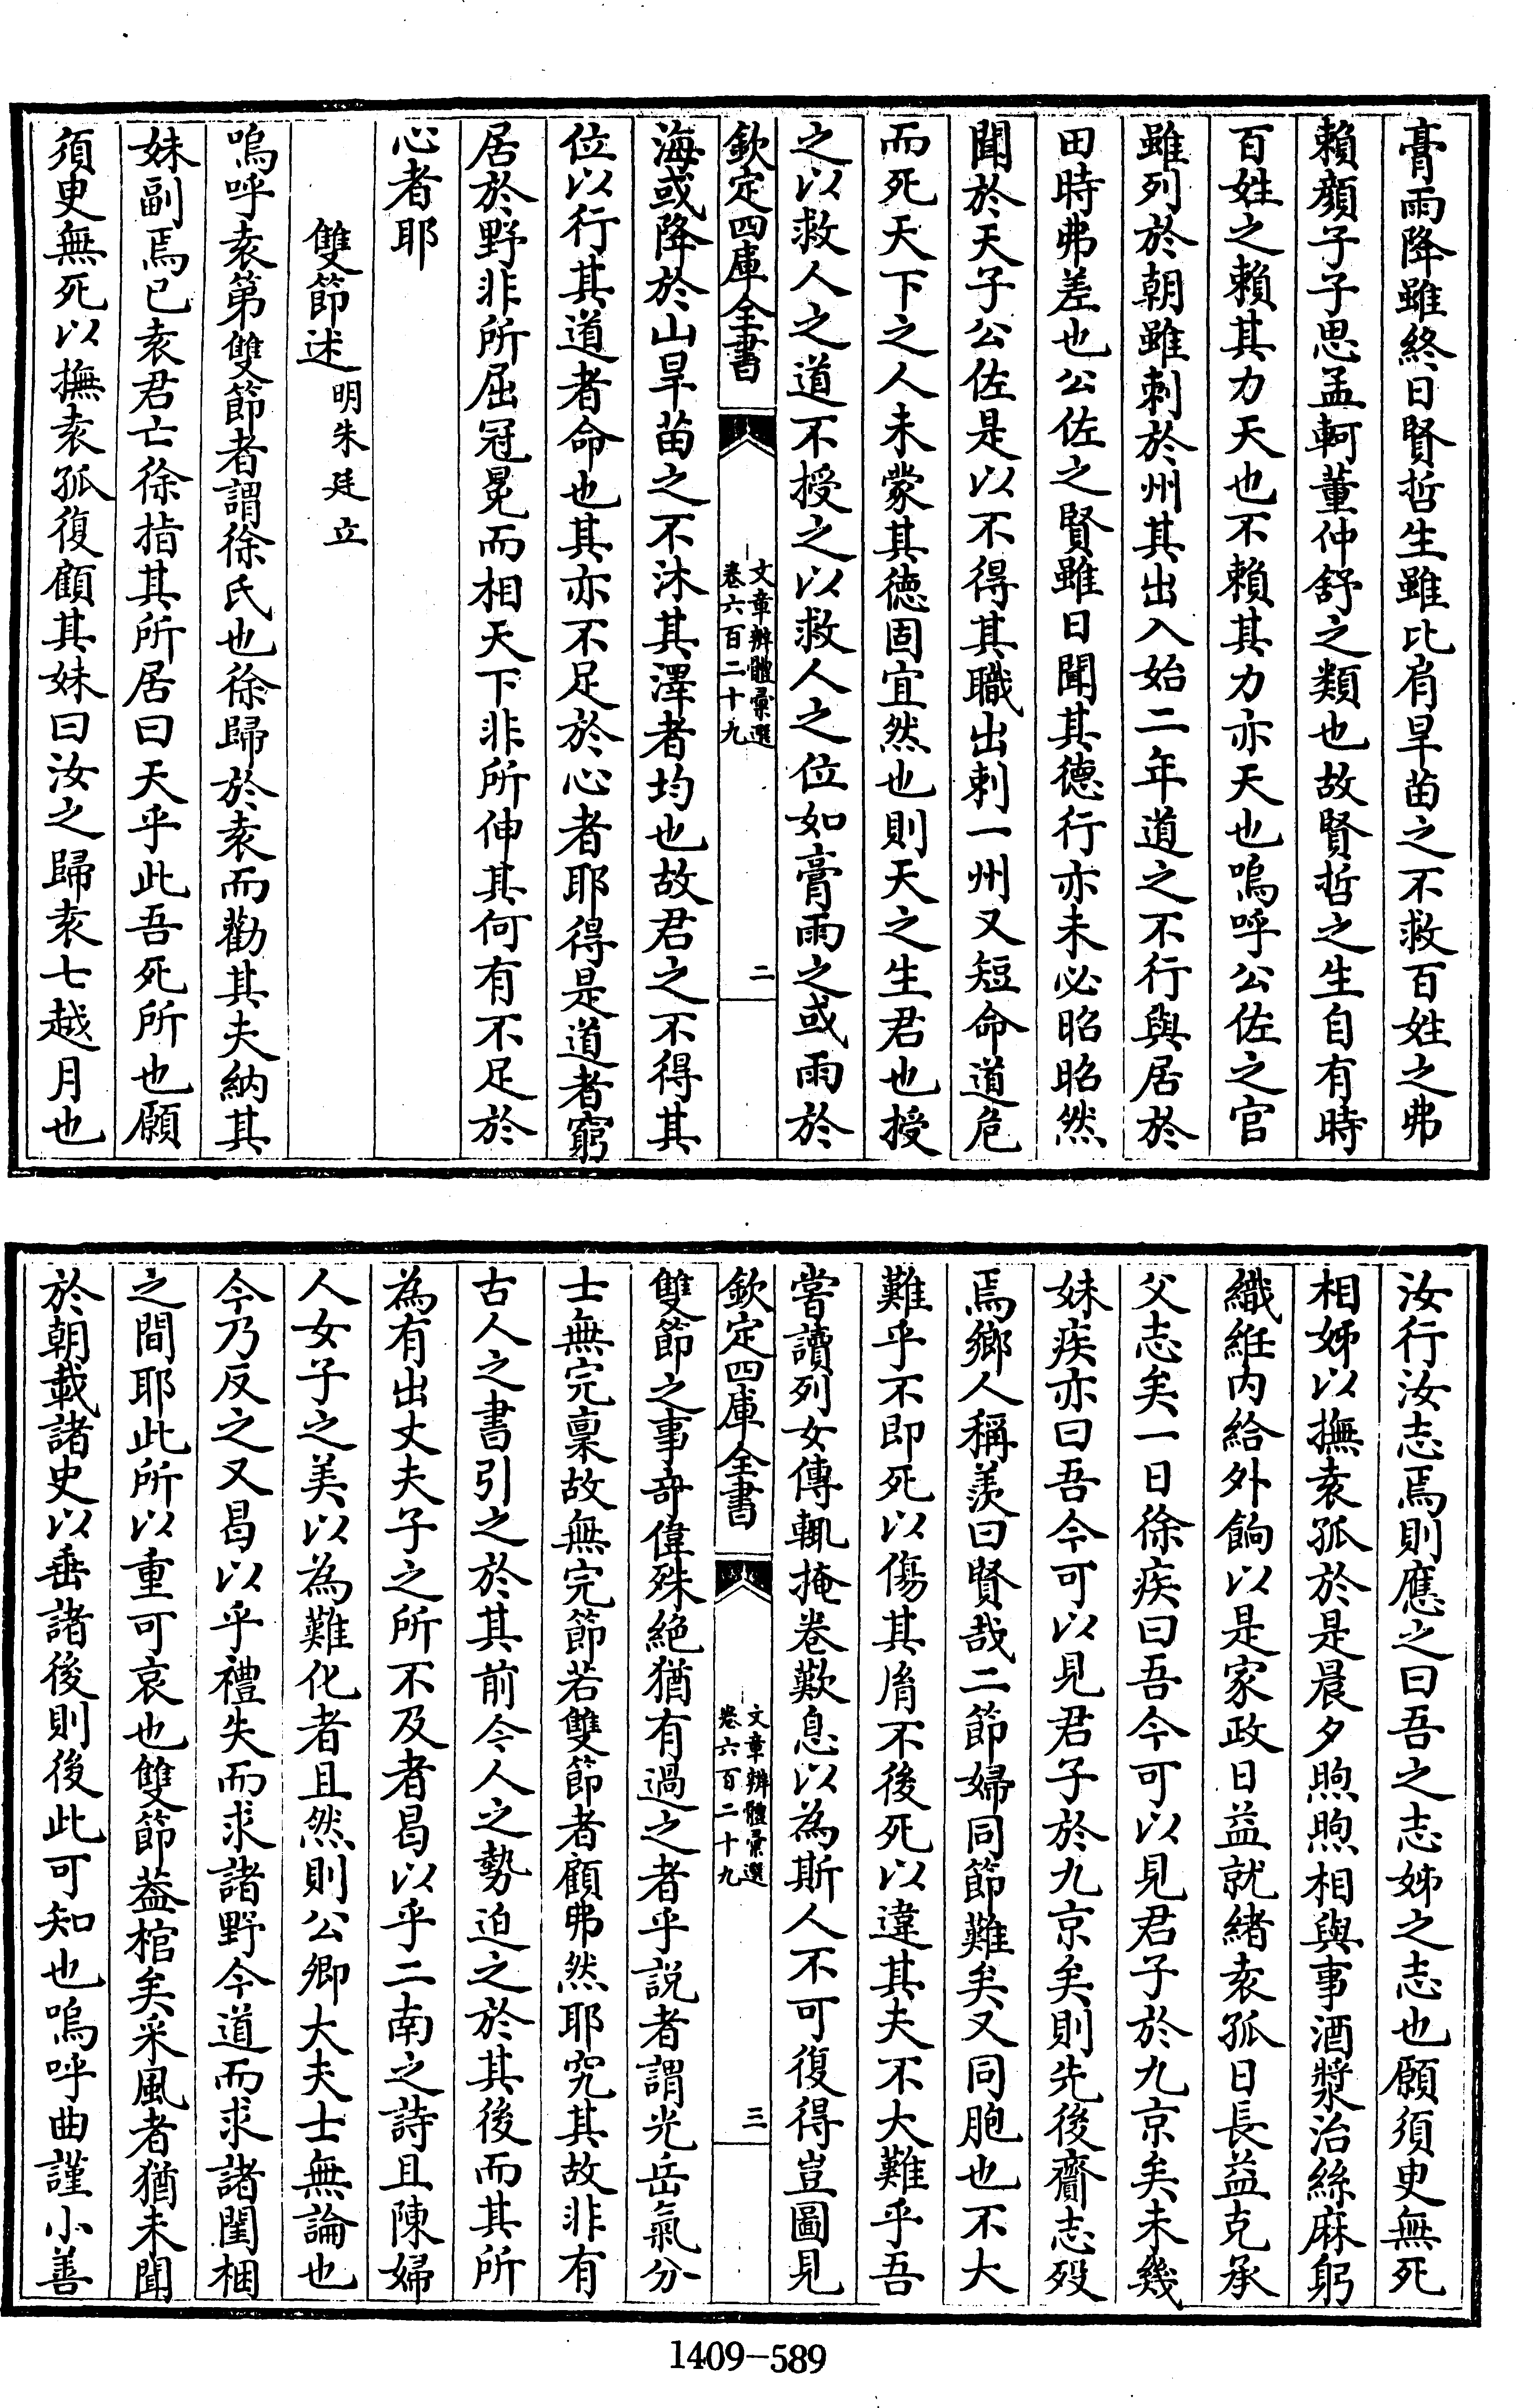 膏雨降雖終日賢哲生雖比肩旱苗之不救百姓之弗
賴顔子子思孟軻董仲舒之類也故賢哲之生自有時
百姓之賴其力天也不賴其力亦天也嗚呼公佐之官
雖列於朝雖刺於州其出入始二年道之不行與居於
田時弗差也公佐之賢雖日聞其德行亦未必昭昭然
聞於天子公佐是以不得其職出刺一州又短命道危
而死天下之人未蒙其德固宜然也則天之生君也授
之以救人之道不授之以救人之位如膏雨之或雨於
欽定四庫全書
文章辨體彙選
卷六百二十九
二
海或降於山旱苗之不沐其澤者均也故君之不得其
位以行其道者命也其亦不足於心者耶得是道者窮
居於野非所屈冠冕而相天下非所伸其何有不足於
心者耶
雙節述明朱廷立
嗚呼袁第雙節者謂徐氏也徐歸於袁而勸其夫納其
妹副焉已袁君亡徐指其所居曰天乎此吾死所也願
須臾無死以撫袁孤復顧其妹曰汝之歸袁七越月也
汝行汝志焉則應之曰吾之志姊之志也願須臾無死
相姊以撫袁孤於是晨夕煦煦相與事酒漿治絲麻躬
織紝内給外餉以是家政日益就緒袁孤日長益克承
父志矣一日徐疾曰吾今可以見君子於九京矣未幾
妹疾亦曰吾今可以見君子於九京矣則先後齎志殁
焉鄉人稱羨曰賢哉二節婦同節難矣又同胞也不大
難乎不即死以傷其胤不後死以違其夫不大難乎吾
嘗讀列女傳輒掩卷歎息以為斯人不可復得豈圖見
欽定四庫全書
文章辨體彙選
卷六百二十九
三
雙節之事奇偉殊絶猶有過之者乎説者謂光岳氣分
士無完稟故無完節若雙節者顧弗然耶究其故非有
古人之書引之於其前今人之勢迫之於其後而其所
為有出丈夫子之所不及者曷以乎二南之詩且陳婦
人女子之美以為難化者且然則公卿大夫士無論也
今乃反之又曷以乎禮失而求諸野今道而求諸閨梱
之間耶此所以重可哀也雙節葢棺矣采風者猶未聞
於朝載諸史以垂諸後則後此可知也嗚呼曲謹小善
1409-589